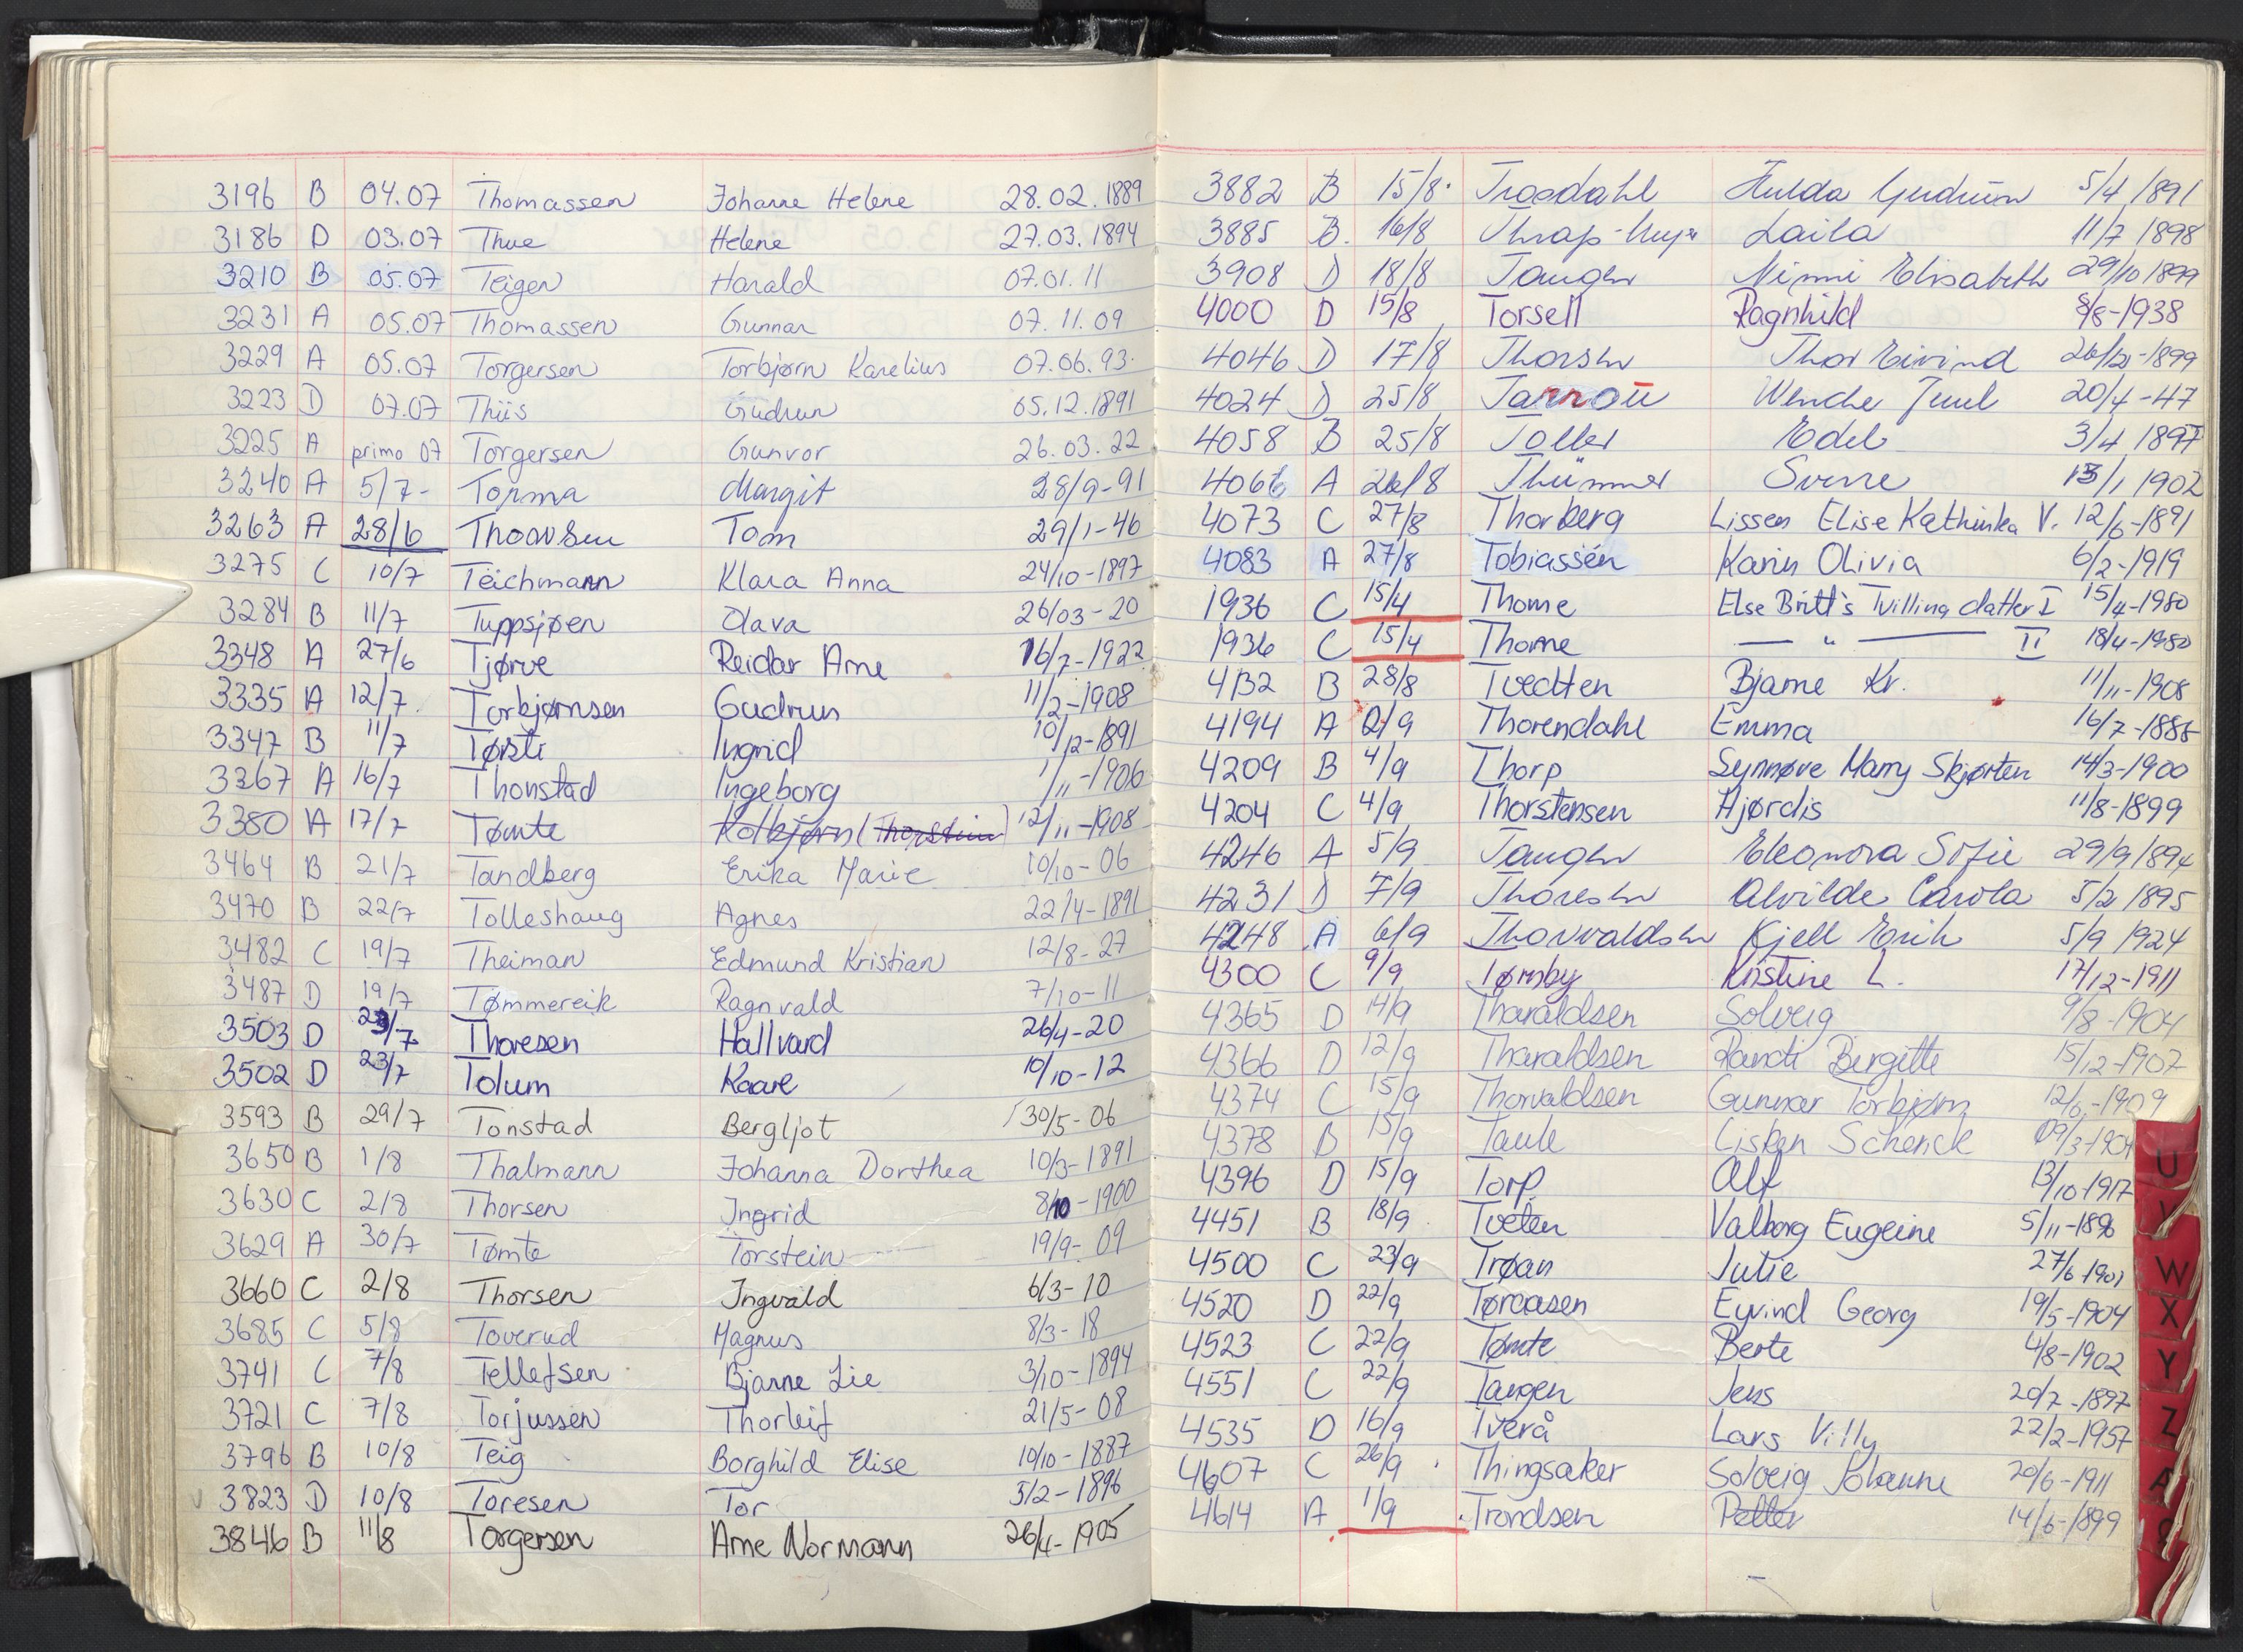 3196 B 04.07 Thomassen Johanne Helene 28.02.1889
3186 D 03.07 Thue Helene 27.03.1894
3210 B 05.07 Teigen Harald 07.01.11
3231 A 05.07 Thomassen Gunnar 07.11.09
3229 A 05.07 Torgersen Torbjørn Karelius 07.06.93.
3223 D 07.07 Thiis Gudrun 05.12.1891
3225 A primo 07 Torgersen Gunvor 26.03.22
3240 A 5/7- Torma Margit 28/9-91
3263 A 28/6 Tom 29/1-46
3275 C 10/7 Teichmann Klara Anna 24/10-1897
3284 B 11/7 Tuppsjøen Olava 26/03-20
3348 A 27/6 Tjørve Reidar Arne 16/7-1922
3335 A 12/7 Torbjørnsen Gudrun 11/2-1908
3347 B 11/7 Tørsti Ingrid 10/12-1891
3367 A 16/7 Thonstad Ingeborg 1/11-1906
3380 A 17/7 Tømte Kolbjørn (Thorstein) 12/11-1908
3464 B 21/7 Tandberg Erika Marie 10/10-06
3470 B 22/7 Tolleshaug Agnes 22/4-1891
3482 C 19/7 Theiman Edmund Kristian 12/8-27
3487 D 19/7 Tømmereik Ragnvald 7/10-11
3503 D 23/7 Thoresen Hallvard 26/4-20
3502 D 23/7 Tolum Kaare 10/10-12
3593 B 29/7 Tonstad Bergljot 30/5-06
3650 B 1/8 Thalmann Johanna Dorthea 10/3-1891
3630 C 2/8 Thorsen Ingrid 8/10-1900
3629 A 30/7 Tømte Torstein 19/9-09
3660 C 2/8 Thorsen Ingvald 6/3-10
3685 C 5/8 Toverud Magnus 8/3-18
3741 C 7/8 Tellefsen Bjarne Lie 3/10-1894
3721 C 7/8 Torjussen Thorleif 21/5-08
3796 B 10/8 Teig Borghild Elise 10/10-1887
3823 D 10/8 Toresen Tor 3/2-1896
3846 B 11/8 Torgersen Arne Normann 26/4-1905
3882 B 15/8. Trosdahl Hulda Gudrun 5/4 1891
3885 B. 16/8 Thrap-Meyer Laila 11/7 1898
3908 D 18/8 Tangen Ninni Elisabeth 29/10 1899
4000 D 15/8 Torsell Ragnhild 8/8-1938
4046 D 17/8 Thorsen Thor Eivind 26/12-1899
4024 D 25/8 Tarrou Wenche Juul 20/4-47
4058 B 25/8 Toller Edel 3/4 1897
4066 A 26/8 Thümmer Sverre 13/1 1902
4073 C 27/8 Thorberg Lissen Elise Kathinka V. 12/6-1891
4083 A 27/8 Tobiassen Karin Olivia 6/2-1919
1936 C 15/4 Thorne Else Britt's Tvilling datter I 15/4-1980
1936 C 15/4 Thorne — " — II 18/4-1980
4132 B 28/8 Tvedten Bjarne Kr. 11/11-1908
4194 A 2/9 Thorendahl Emma 16/7-1885
4209 B 4/9 Thorp Synnøve Marry Skjørten 14/3-1900
4204 C 4/9 Thorstensen Hjørdis 11/8-1899
4246 A 5/9 Tangen Eleonora Sofie 29/9 1894
4231 D 7/9 Thoresen Alvilde Carola 5/2 1895
4248 A 6/9 Thorvaldsen Kjell Erik 5/9 1924
4300 C 9/9 Tørnby Kristine L. 17/12-1911
4365 D 14/9 Tharaldsen Solveig 9/8-1904
4366 D 12/9 Tharaldsen Randi Birgitte 15/12-1907
4374 C 15/9 Thorvaldsen Gunnar Torbjørn 12/6-1909
4378 B 15/9 Taule Lisken Schenck 09/3-1904
4396 D 15/9 Torp Alf 13/10-1917
4451 B 18/9 Tveten Valborg Eugeine 5/11-1896
4500 C 23/9 Trøan Jutie 27/6-1901
4520 D 22/9 Tøraasen Eyvind Georg 19/5-1904
4523 C 22/9 Tømte Berte 4/8-1902
4551 C 22/9 Tangen Jens 20/7-1897
4535 D 16/9 Tverå Lars Villy 22/2-1957
4607 C 26/9 Thingsaker Solveig Johanne 20/6-1911
4614 A 1/9 Trondsen Petter 14/6-1899
U
V
W
X
Y
Z